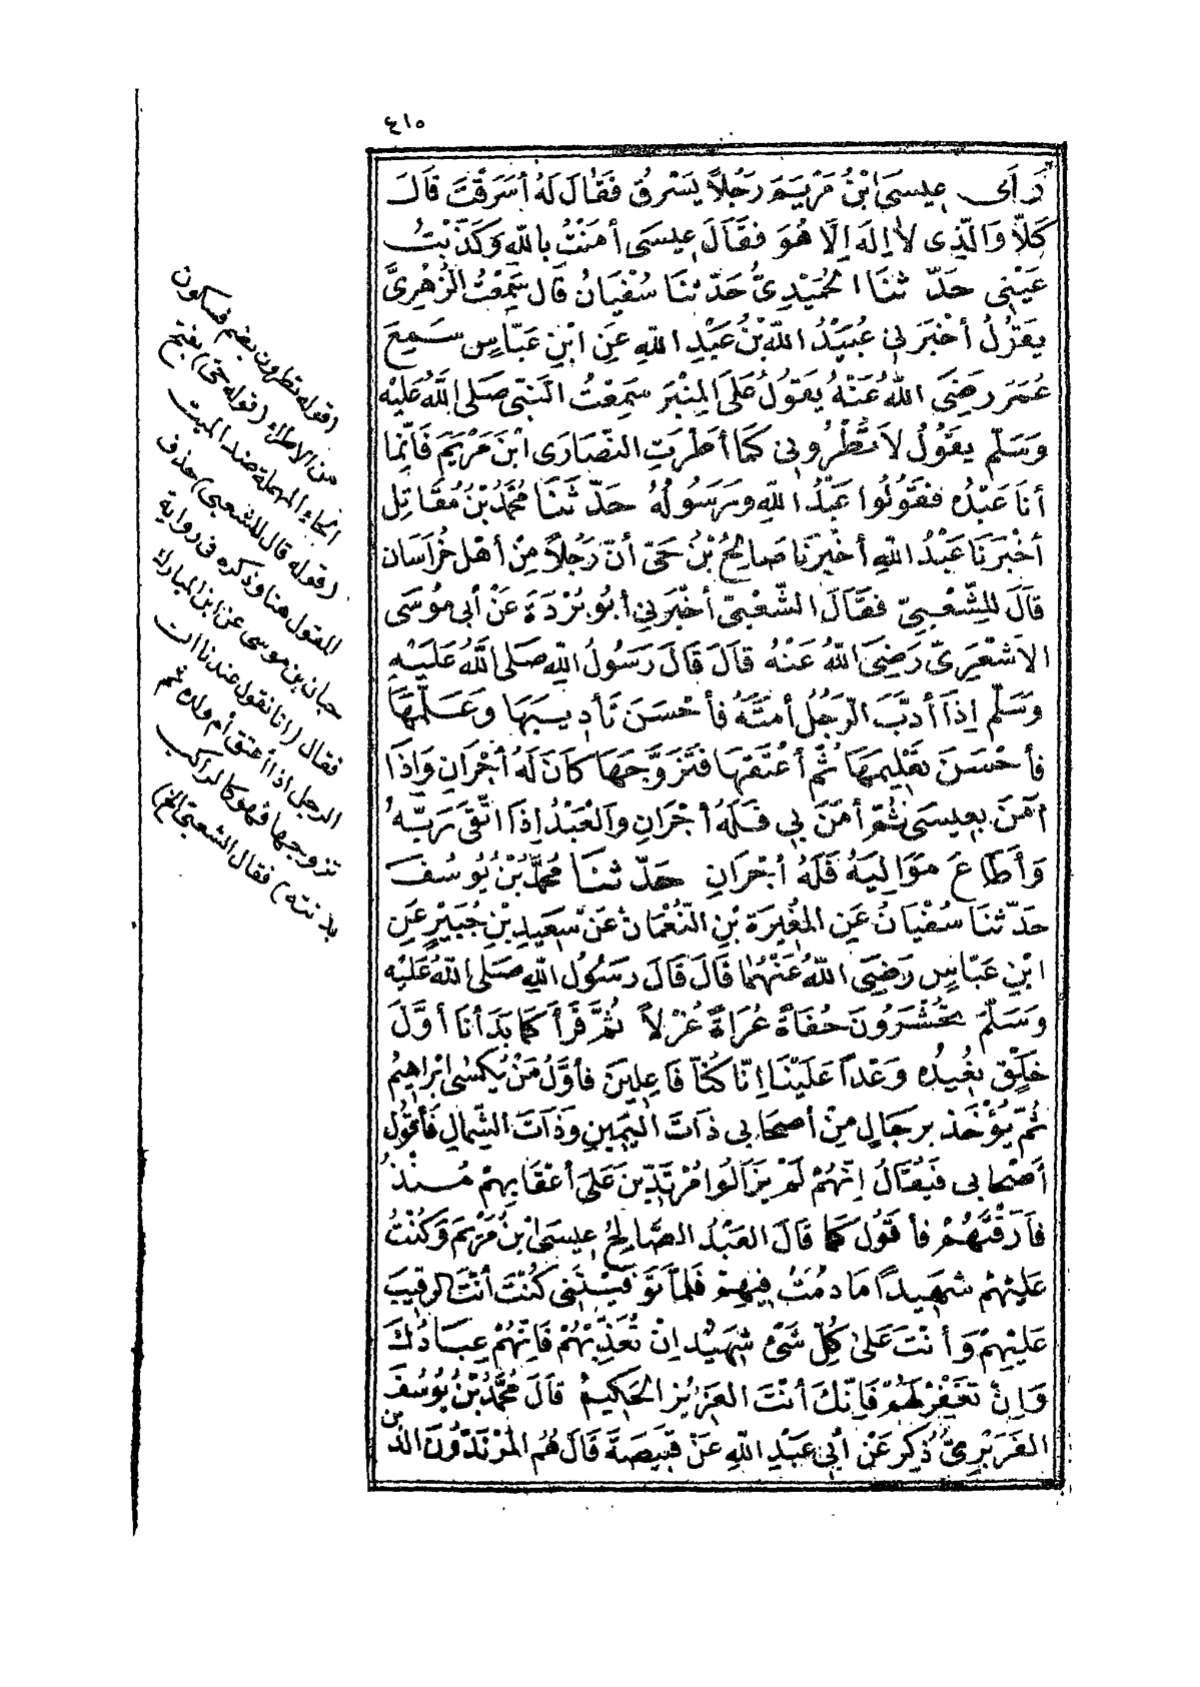 ٤١٥
رَأَى عِيسَى ابْنُ مَرْيَمَ رَجُلاً يَسْرِقُ فَقَالَ لَهُ أَسَرَقْتَ قَالَ
كَلاَّ وَالَّذِى لاَ اِلَهَ اِلاَّ هُوَ فَقَالَ عِيسَى أمَنْتُ بِاللهِ وَكَذَّبْتُ
عَيْنِى حَدَّثَنَا الحُمَيْدِىُّ حَدَّثَنَا سُفْيَانُ قَالَ سَمِعْتُ الزُّهْرِىَّ
يَقُولُ أخْبَرَنِى عُبَيْدُ اللهِ بْنُ عَبْدِ اللهِ عَنِ ابْنِ عَبَّاسٍ سَمِعَ
عُمَرَ رَضِىَ اللهُ عَنْهُ يَقُولُ عَلَى المِنْبَرِ سَمِعْتُ النَّبِىَّ صَلَى اللهُ عَلَيْهِ
وَسَلَّمَ يَقُولُ لاَ تُطْرُونِى كَمَا أطْرَتِ النَّصَارَى ابْنَ مَرْيَمَ فَاِنَّمَا
أنَا عَبْدُهُ فَقُولُوا عَبْدُ اللهِ وَرَسُولُهُ حَدَّثَنَا مُحَمَّدُ بْنُ مُقَاتِلٍ
أخْبَرَنَا عَبْدُ اللهِ أخْبَرَنَا صَالِحُ بْنُ حَىٍّ أنَّ رَجُلاً مِنْ أهْلِ خُرَاسَانَ
قَالَ لِلشَّعْبِىِّ فَقَالَ الشَّعْبِىُّ أخْبَرَنِى أبُو بُرْدَةَ عَنْ أبِى مُوسَى
الاَشْعَرِىِّ رَضِىَ اللهُ عَنْهُ قَالَ قَالَ رَسُولُ اللهِ صَلَى اللهُ عَلَيْهِ
وَسَلَّمَ اِذَا أدَّبَ الرَّجُلُ أمَتَهُ فَأحْسَنَ تَأدِيبَهَا وَعَلَّمَهَا
فَأحْسَنَ تَعْلِيمَهَا ثُمَّ أعْتَقَهَا فَتَزَوَّجَهَا كَانَ لَهُ أجْرَانِ وَاِذَا
آمَنَ بِعِيسَى ثُمَّ أمَنَ بِى فَلَهُ أجْرَانِ وَالعَبْدُ اِذَا اتَّقَى رَبَّهُ
وَأطَاعَ مَوَالِيَهُ فَلَهُ أجْرَانِ حَدَّثَنَا مُحَمَّدُ بْنُ يُوسُفَ
حَدَّثَنَا سُفْيَانُ عَنِ المُغِيرَةِ بْنِ النُّعْمَانِ عَنْ سَعِيدِ بْنِ جُبَيْرٍ عَنِ
ابْنِ عَبَّاسٍ رَضِىَ اللهُ عَنْهُمَا قَالَ قَالَ رَسُولُ اللهِ صَلَى اللهُ عَلَيْهِ
وَسَلَّمَ تُحْشَرُونَ حُفَاةً عُرَاةً غُرْلاً ثُمَّ قَرَأَ كَمَا بَدَأنَا أوَّلَ
خَلْقٍ نُعِيدُهُ وَعْداً عَلَيْنَا اِنَّا كُنَّا فَاعِلِينَ فَأوَّلُ مَنْ يُكْسَى اِبْرَاهِيمُ
ثُمَّ يُؤْخَذُ بِرِجَالٍ مِنْ أصْحَابِى ذَاتَ اليَمِينِ وَذَاتَ الشِّمَالِ فَأقُولُ
أصْحَابِى فَيُقَالُ اِنَّهُمْ لَمْ يَزَالُوا مُرْتَدِّينَ عَلَى أعْقَابِهِمْ مُنْذُ
فَارَقْتَهُمْ فَأقُولُ كَمَا قَالَ العَبْدُ الصَّالِحُ عِيسَى ابْنُ مَرْيَمَ وَكُنْتُ
عَلَيْهِمْ شَهِيداً مَا دُمْتُ فِيهِمْ فَلَمَّا تَوَفَّيْتَنِى كُنْتَ أنْتَ الرَّقِيبَ
عَلَيْهِمْ وَأنْتَ عَلَى كُلِّ شَىْءٍ شَهِيدٌ اِنْ تُعَذِّبْهُمْ فَاِنَّهُمْ عِبَادُكَ
وَاِنْ تَغْفِرْ لَهُمْ فَاِنَّكَ أنْتَ العَزِيزُ الحَكِيمُ قَالَ مُحَمَّدُ بْنُ يُوسُفَ
الفَرَبْرِىُّ ذُكِرَ عَنْ أبِى عَبْدِ اللهِ عَنْ قَبِيصَةَ قَالَ هُمُ المُرْتَدُّونَ الذِينَ
(قوله تطرون بضم فسكون
من الاطراء (قوله حى) بفتح
الحاء المهملة ضد الميت
(قوله قال للشعبى) حذف
المقول هنا وذكره فى رواية
حبان بن موسى عن ابن المبارك
فقال (انا نقول عندنا ان
الرجل اذا أعتق أم ولده ثم
تزوجها فهو كالراكب
بدنته) فقال الشعبى الخ)